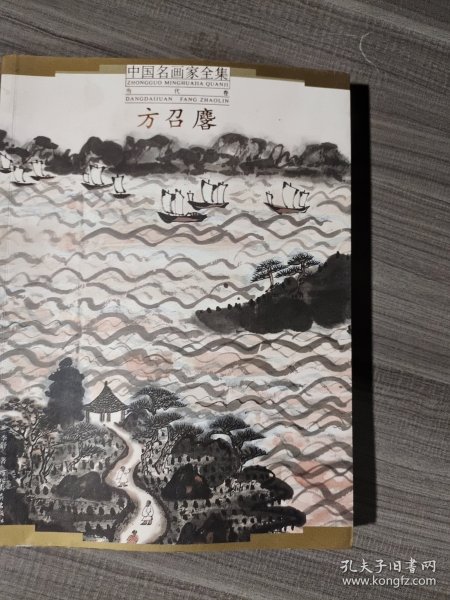 中国名画家全集
ZHONGGUO MINGHUAJIA QUANJI
当代卷
DANGDAIJUAN FANG ZHAOLIN
方召麐
孔夫子旧书网
www.kongfz.com